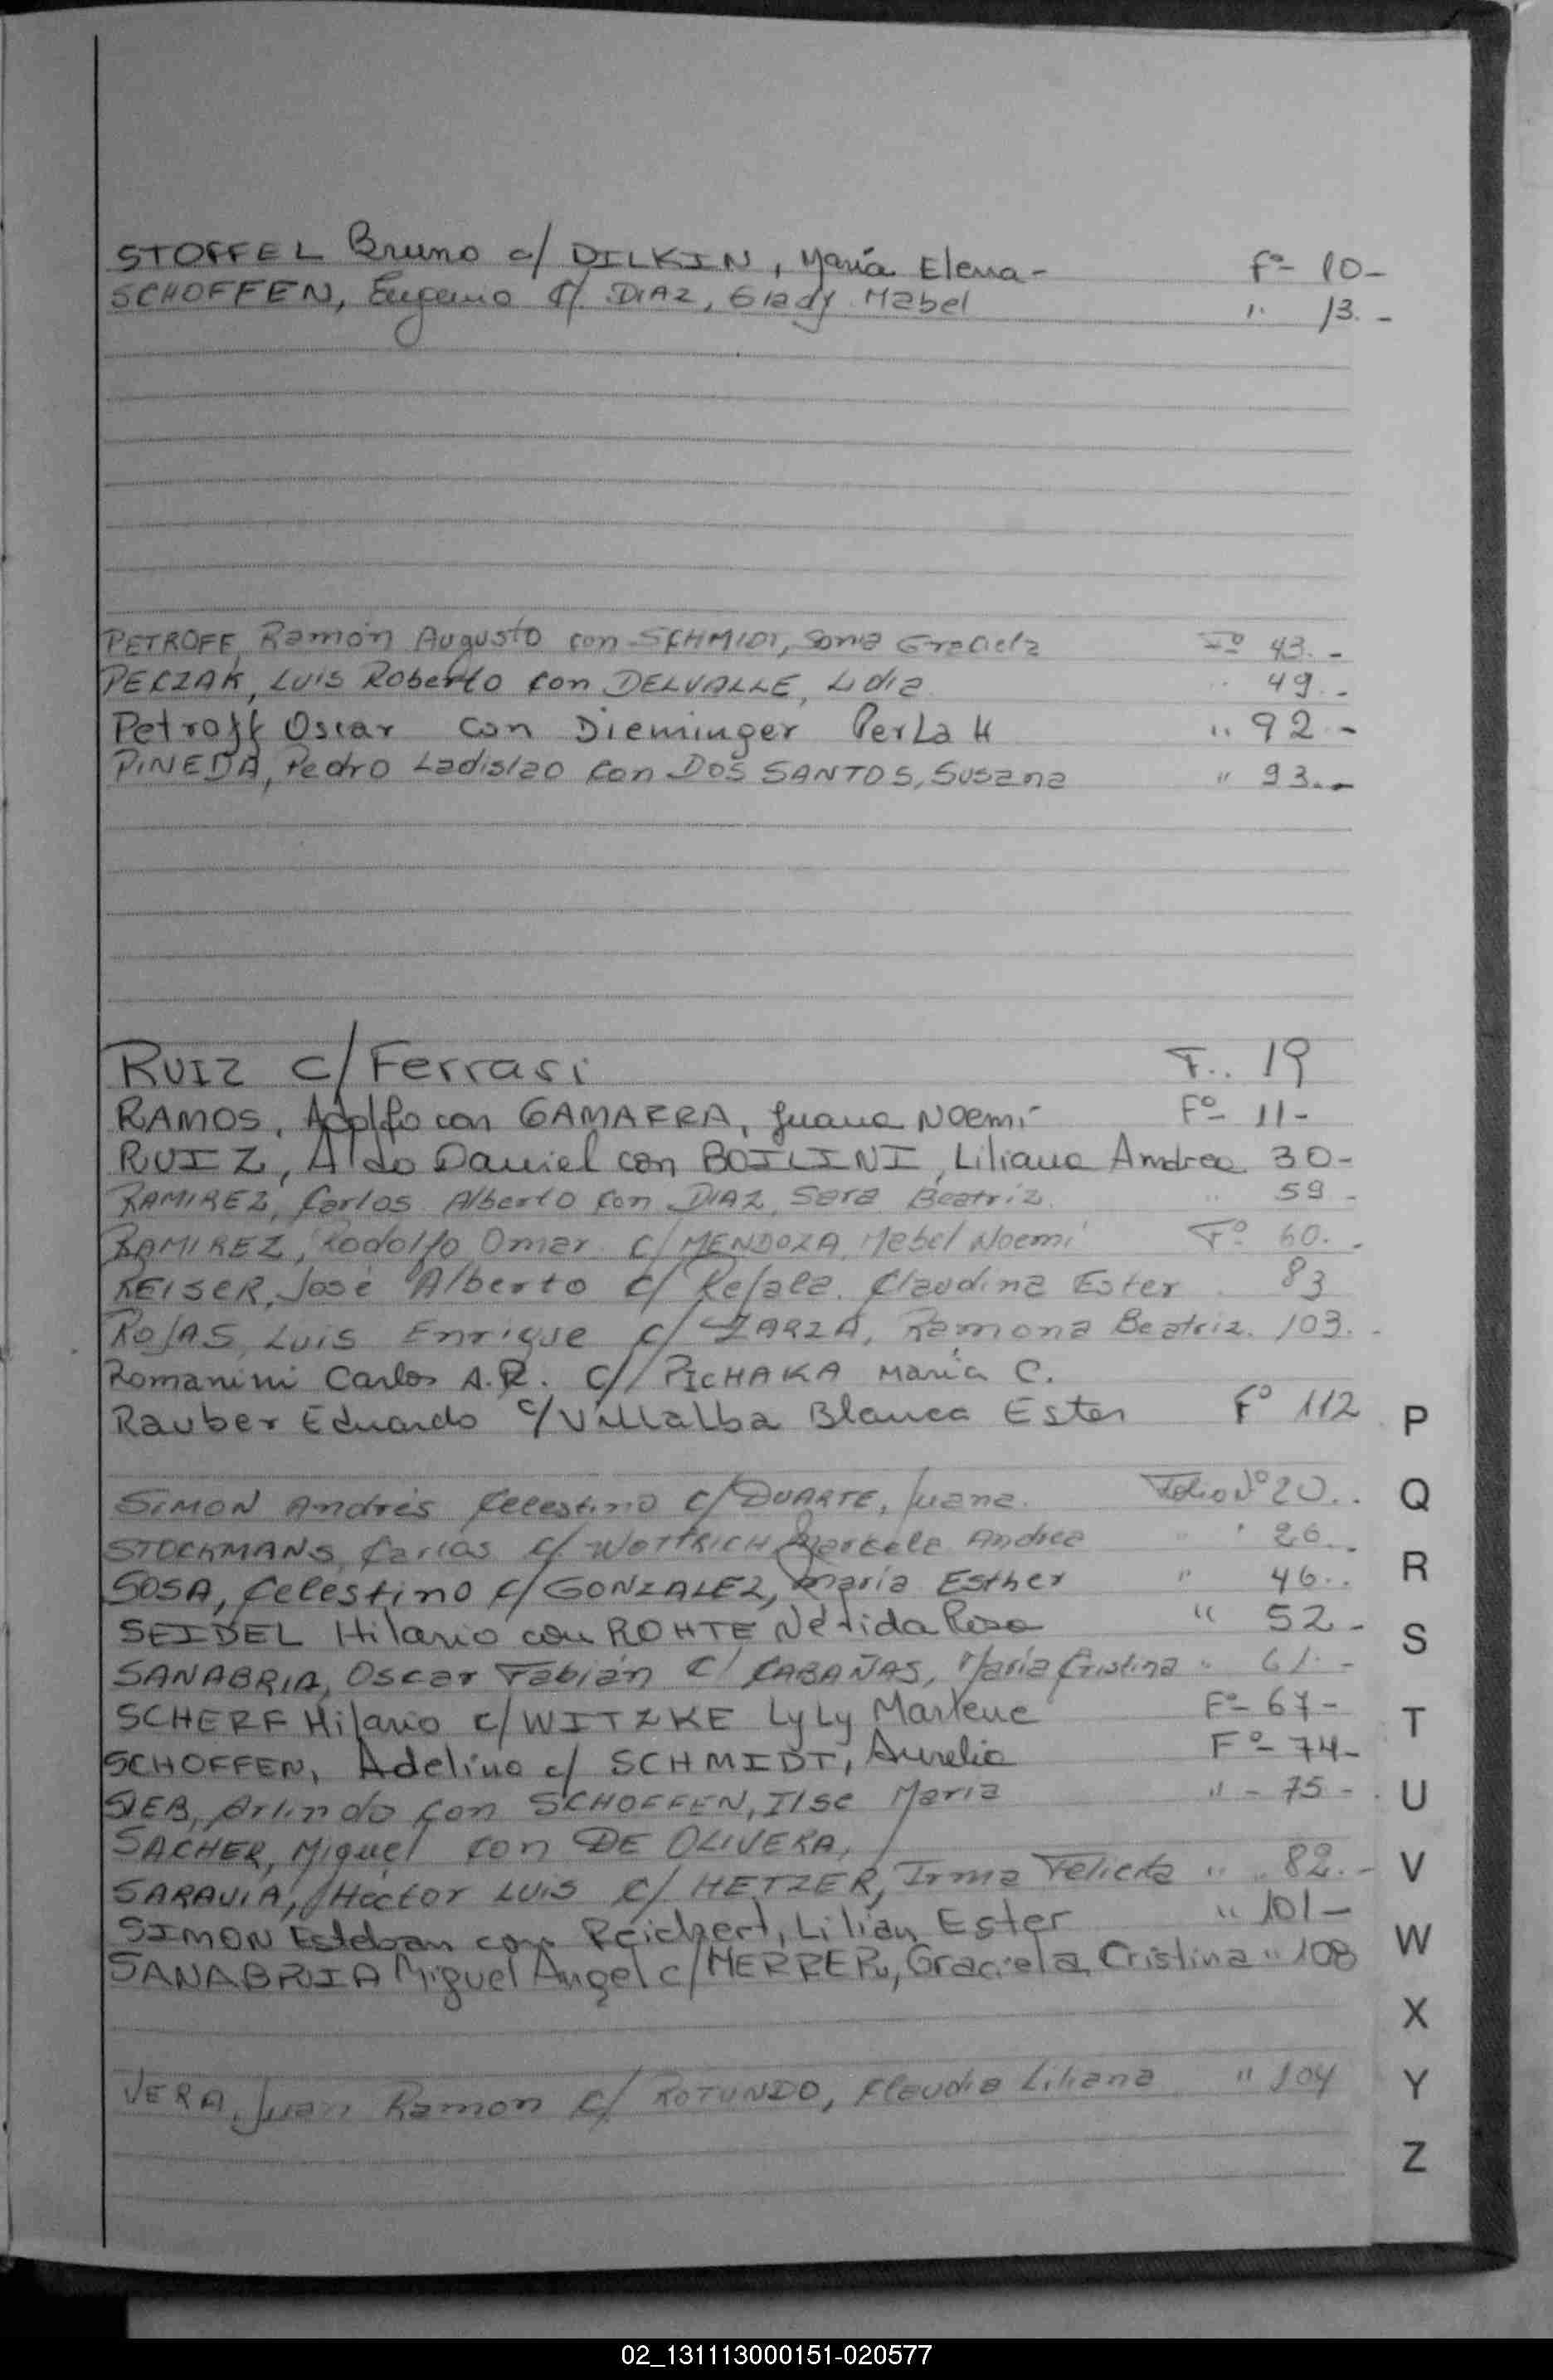 STOFFEL Bruno c/ DILKIN, María Elena - Fº 10-
SCHOFFEN, Eugenio c/. DIAZ, Glady Mabel " 13.-
PETROFF, Ramón Augusto con SCHMIDT, Sonia Graciela Fº 43.-
PECZAK, Luis Roberto con DELVALLE, Lidia " 49.-
Petroff Oscar con Dieminger Perla H " 92.-
PINEDA, Pedro Ladislao con DOS SANTOS, Susana " 93.-
RUIZ c/ Ferrari F.. 19
RAMOS, Adolfo con GAMARRA, Juana Noemi Fº 11-
RUIZ, Aldo Daniel con BOILINI, Liliana Andrea 30-
RAMIREZ, Carlos Alberto con DIAZ, Sara Beatriz. " 59-
RAMIREZ, Rodolfo Omar c/ MENDOZA, Mabel Noemi Fº 60.-
REISER, José Alberto c/ Refala. Claudina Ester 83
ROJAS, Luis Enrique c/ ZARZA, Ramona Beatriz. 103.-
Romanini Carlos A.R. c/ PICHAKA María C.
Rauber Eduardo c/ Villalba Blanca Ester Fº 112
P
SIMON Andrés Celestino c/ DUARTE, Juana. Folio Nº 20..
Q
STOCKMANS, Carlos c/. WOTTRICH Marcela Andrea " " 26..
R
SOSA, Celestino c/ GONZALEZ, María Esther " 46..
SEIDEL Hilario con ROHTE Nélida Rosa " 52-
S
SANABRIA, Oscar Fabián c/ CABAÑAS, María Cristina " 61.-
SCHERF Hilario c/ WITZKE LyLy Marlene Fº 67-
T
SCHOFFEN, Adelino c/ SCHMIDT, Aurelia Fº 74-
SIEB, Arlindo con SCHOFFEN, Ilse María " - 75-.
U
SACHER, Miguel con DE OLIVERA,
SARAVIA, Héctor Luis c/ HETZER, Irma Felicita " " 82.-
V
SIMON Esteban con Reichert, Lilian Ester " 101-
SANABRIA Miguel Angel c/ HERRER, Graciela Cristina " 108
W
X
VERA, Juan Ramon c/ ROTUNDO, Claudia Liliana " 104
Y
Z
02_131113000151-020577